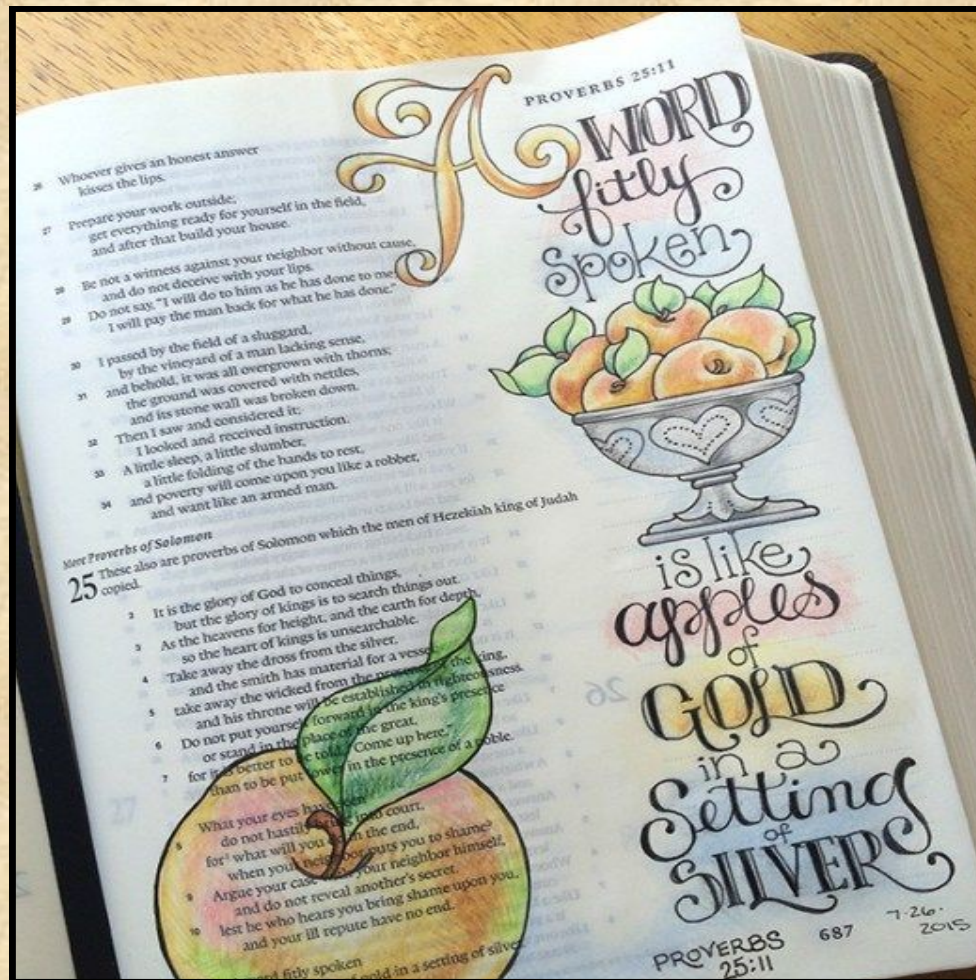 26 Whoever gives an honest answer
kisses the lips.
27 Prepare your work outside;
get everything ready for yourself in the field,
and after that build your house.
28 Be not a witness against your neighbor without cause,
and do not deceive with your lips.
29 Do not say, "I will do to him as he has done to me;
I will pay the man back for what he has done."
30 I passed by the field of a sluggard,
by the vineyard of a man lacking sense,
31 and behold, it was all overgrown with thorns;
the ground was covered with nettles,
and its stone wall was broken down.
32 Then I saw and considered it;
I looked and received instruction.
33 A little sleep, a little slumber,
a little folding of the hands to rest,
34 and poverty will come upon you like a robber,
and want like an armed man.
More Proverbs of Solomon
25 These also are proverbs of Solomon which the men of Hezekiah king of Judah
copied.
2 It is the glory of God to conceal things,
but the glory of kings is to search things out.
3 As the heavens for height, and the earth for depth,
so the heart of kings is unsearchable.
4 Take away the dross from the silver,
and the smith has material for a vessel;
5 take away the wicked from the presence of the king,
and his throne will be established in righteousness.
6 Do not put yourself forward in the king's presence
or stand in the place of the great,
7 for it is better to be told, "Come up here,"
than to be put lower in the presence of a noble.
What your eyes have seen
8 do not hastily bring into court,
for what will you do in the end,
when your neighbor puts you to shame?
9 Argue your case with your neighbor himself,
and do not reveal another's secret,
10 lest he who hears you bring shame upon you,
and your ill repute have no end.
word fitly spoken
gold in a setting of silver
PROVERBS 25:11
A WORD
fitly
spoken
is like
apples
of
GOLD
in a
Setting
of
SILVER
PROVERBS
25:11
687
7.26.
2015